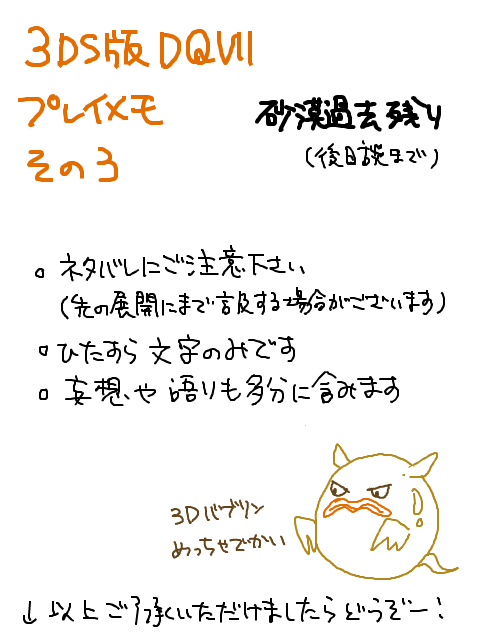 3DS版DQVII
プレイメモ
その3
砂漠過去残り
(後日談まで)
○ネタバレにご注意下さい
(先の展開にまで言及する場合がございます)
○ひたすら文字のみです
○妄想や語りも多分に含みます
3Dバブリン
めっちゃでかい
↓以上ご了承いただけましたらどうぞー!